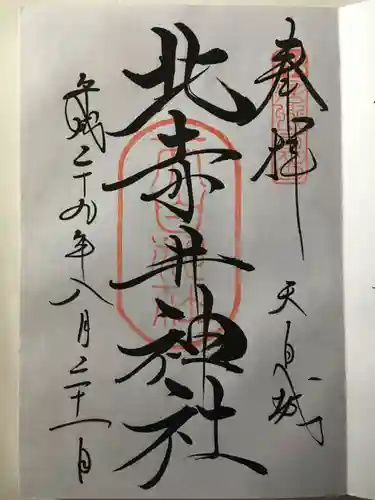 奉拝
北赤井神社
平成二十九年八月二十一日